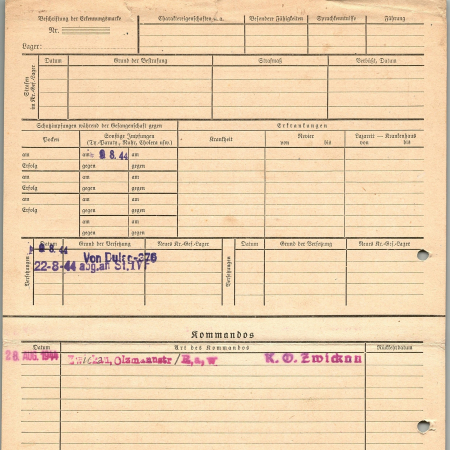 Beschriftung der Erkennungsmarke
Charaktereigenschaften u. a.
Besondere Fähigkeiten
Sprachkenntnisse
Führung
Nr.
Lager:
Strafen im Kr.-Gef.-Lager
Datum
Grund der Bestrafung
Strafmaß
Verbüßt, Datum
Schutzimpfungen während der Gefangenschaft gegen
Erkrankungen
Pocken
Sonstige Impfungen
(Ty.-Paraty., Ruhr, Cholera usw.)
Krankheit
Revier
von bis
Lazarett — Krankenhaus
von bis
am am 8.44 am
Erfolg gegen gegen
am am am
Erfolg gegen gegen
am am am
Erfolg gegen gegen
am am
gegen gegen
Versetzungen
Datum
Grund der Versetzung
Neues Kr.-Gef.-Lager
Versetzungen
Datum
Grund der Versetzung
Neues Kr.-Gef.-Lager
8.44
Von Dulag-
22-8-44 abg.an St.IVF
Kommandos
Datum
Art des Kommandos
Rückkehrdatum
28. AUG. 1944 Zwickau, /R,a,w K. O. Zwickau